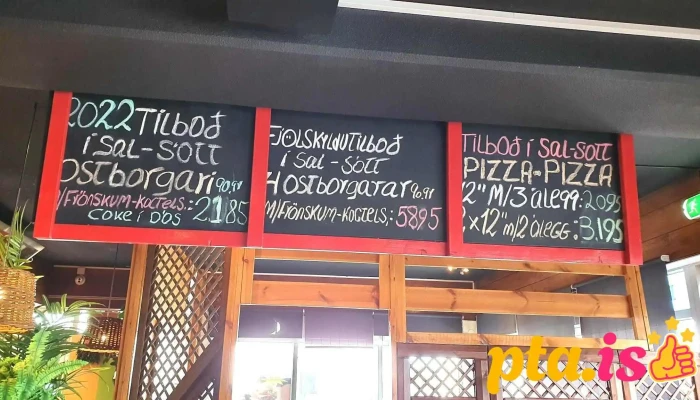 2022 Tilboð
í Sal-Sótt
Ostborgari 90gr
M/Frönskum-Koctels.: 2185
Coke í Dós
Fjölskyldutilboð
í Sal-Sótt
4 Ostborgarar 90gr
M/Frönskum-Koctels.: 5895
Tilboð í Sal-Sótt
PIZZA-PIZZA
12" M/3 álegg: 2095
2x12" m/2 álegg: 3.195
pta.is